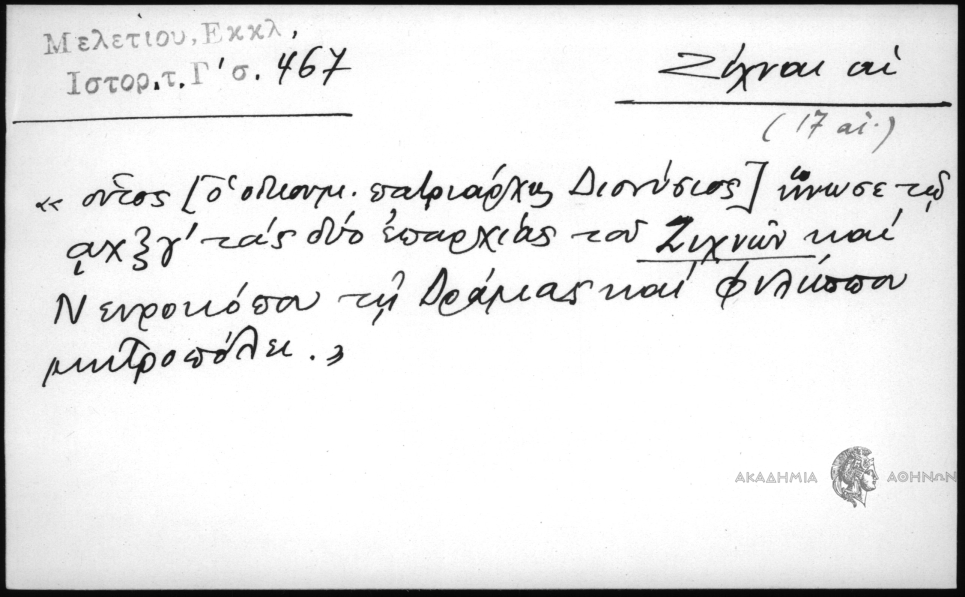 Μελετίου, Εκκλ,
Ιστορ. τ. Γ' σ. 467
Ζίχναι αἱ
(17 αἰ.)
« οὗτος [ὁ οἰκουμ. πατριάρχης Διονύσιος] ἥνωσε τῷ
͵αχξγ' τὰς δύο ἐπαρχίας τοῦ Ζιχνῶν καὶ
Νευροκόπου τῇ Δράμας καὶ Φιλίππου
μητροπόλει. »
ΑΚΑΔΗΜΙΑ ΑΘΗΝΩΝ